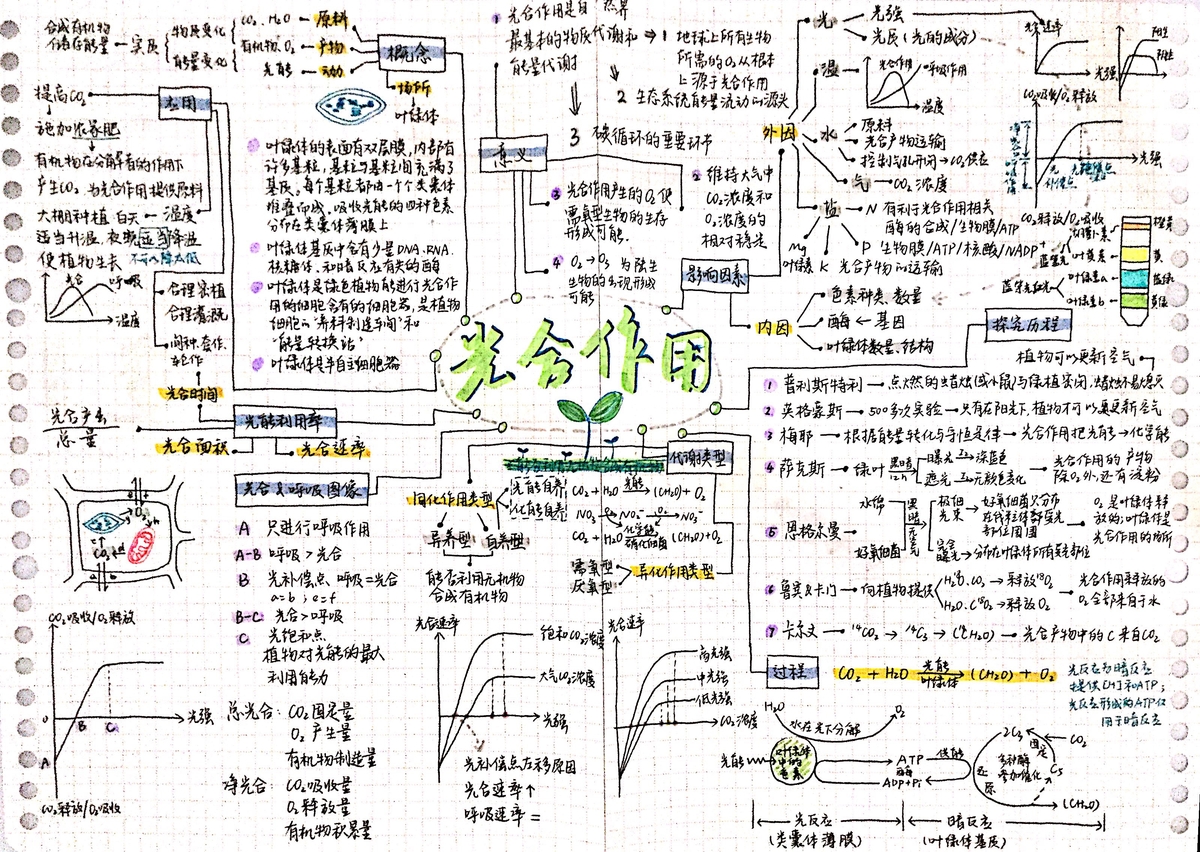 光合作用
概念
原料
CO₂、H₂O
产物
有机物、O₂
动力
光能
场所
叶绿体
实质
物质变化
能量变化
合成有机物
储存能量
叶绿体的表面有双层膜，内部有
许多基粒，基粒与基粒间充满了
基质，每个基粒都由一个个类囊体
堆叠而成，吸收光能的四种色素
分布在类囊体薄膜上
叶绿体基质中含有少量DNA、RNA、
核糖体，和暗反应有关的酶
叶绿体是绿色植物能进行光合作
用的细胞含有的细胞器，是植物
细胞的"养料制造车间"和
"能量转换站"
叶绿体是半自主细胞器
应用
提高CO₂
施加农家肥
有机物在分解者的作用下
产生CO₂，为光合作用提供原料
大棚种植 白天 ← 温度
适当升温，夜晚适当降温
使植物生长
不可以降太低
光合
呼吸
温度
合理密植
合理灌溉
间种、套作、
轮作
光能利用率
光合时间
光合面积
光合速率
光合产量
总量
意义
1 光合作用是自然界
最基本的物质代谢和
能量代谢
1 地球上所有生物
所需的O₂从根本
上源于光合作用
2 生态系统能量流动的源头
3 碳循环的重要环节
2 维持大气中
CO₂浓度和
O₂浓度的
相对稳定
3 光合作用产生的O₂使
需氧型生物的生存
形成可能.
4 O₂→O₃ 为陆生
生物的出现形成
可能
影响因素
外因
光
光强
光质（光的成分）
光合速率
光强
阳生
阴生
温
光合作用
呼吸作用
温度
水
原料
光合产物运输
控制气孔开闭→CO₂供应
气→CO₂浓度
CO₂吸收/O₂释放
光强
CO₂释放/O₂吸收
盐
N 有利于光合作用相关
酶的合成/生物膜/ATP
P 生物膜/ATP/核酸/NADP⁺
K 光合产物的运输
Mg
叶绿素
胡萝卜素
叶黄素
叶绿素a
叶绿素b
蓝紫光
蓝紫光红光
橙黄
黄
蓝绿
黄绿
内因
色素种类、数量
酶 ← 基因
叶绿体数量、结构
探究历程
植物可以更新空气
1 普利斯特利→点燃的蜡烛(或小鼠)与绿植实闭，蜡烛不易熄灭
2 英格豪斯→500多次实验→只有在阳光下，植物才可以更新空气
3 梅耶→根据能量转化与守恒定律→光合作用把光能→化学能
4 萨克斯→绿叶
黑暗
12h
曝光→深蓝色
遮光→无颜色变化
光合作用的产物
除O₂外，还有淀粉
5 恩格尔曼
水绵
好氧细菌
黑暗无空气
极细光束→好氧细菌只分布
在叶绿体曝光
部位周围
完全曝光→分布在叶绿体所有受光部位
O₂是叶绿体释
放的；叶绿体是
光合作用的场所
6 鲁宾&卡门→向植物提供
H₂¹⁸O、CO₂→释放¹⁸O₂
H₂O、C¹⁸O₂→释放O₂
光合作用释放的
O₂全部来自于水
7 卡尔文→¹⁴CO₂→¹⁴C₃→(¹⁴CH₂O)→光合产物中的C来自CO₂
代谢类型
同化作用类型
异养型
自养型
能否利用无机物
合成有机物
光能自养
化能自养
CO₂+H₂O 光能→(CH₂O)+O₂
CO₂+H₂O 化学能→(CH₂O)+O₂
硝化细菌
需氧型
厌氧型
异化作用类型
光合&呼吸图像
A 只进行呼吸作用
A-B 呼吸>光合
B 光补偿点、呼吸=光合
a=b；e=f
B-C 光合>呼吸
C 光饱和点
植物对光能的最大
利用能力
CO₂吸收/O₂释放
O
A
B
C
光强
CO₂释放/O₂吸收
总光合：CO₂固定量
O₂产生量
有机物制造量
净光合：CO₂吸收量
O₂释放量
有机物积累量
光合速率
饱和CO₂浓度
大气CO₂浓度
光强
光补偿点左移原因
光合速率↑
呼吸速率=
光合速率
高光强
中光强
低光强
CO₂浓度
过程
CO₂+H₂O 光能→(CH₂O)+O₂
叶绿体
光反应为暗反应
提供[H]和ATP；
光反应形成的ATP仅
用于暗反应
H₂O
水在光下分解
O₂
光能
叶绿体
中的
色素
ATP
酶
ADP+Pi
供能
还原
2C₃
固定
CO₂
多种酶
参加催化
C₅
(CH₂O)
光反应
(类囊体薄膜)
暗反应
(叶绿体基质)